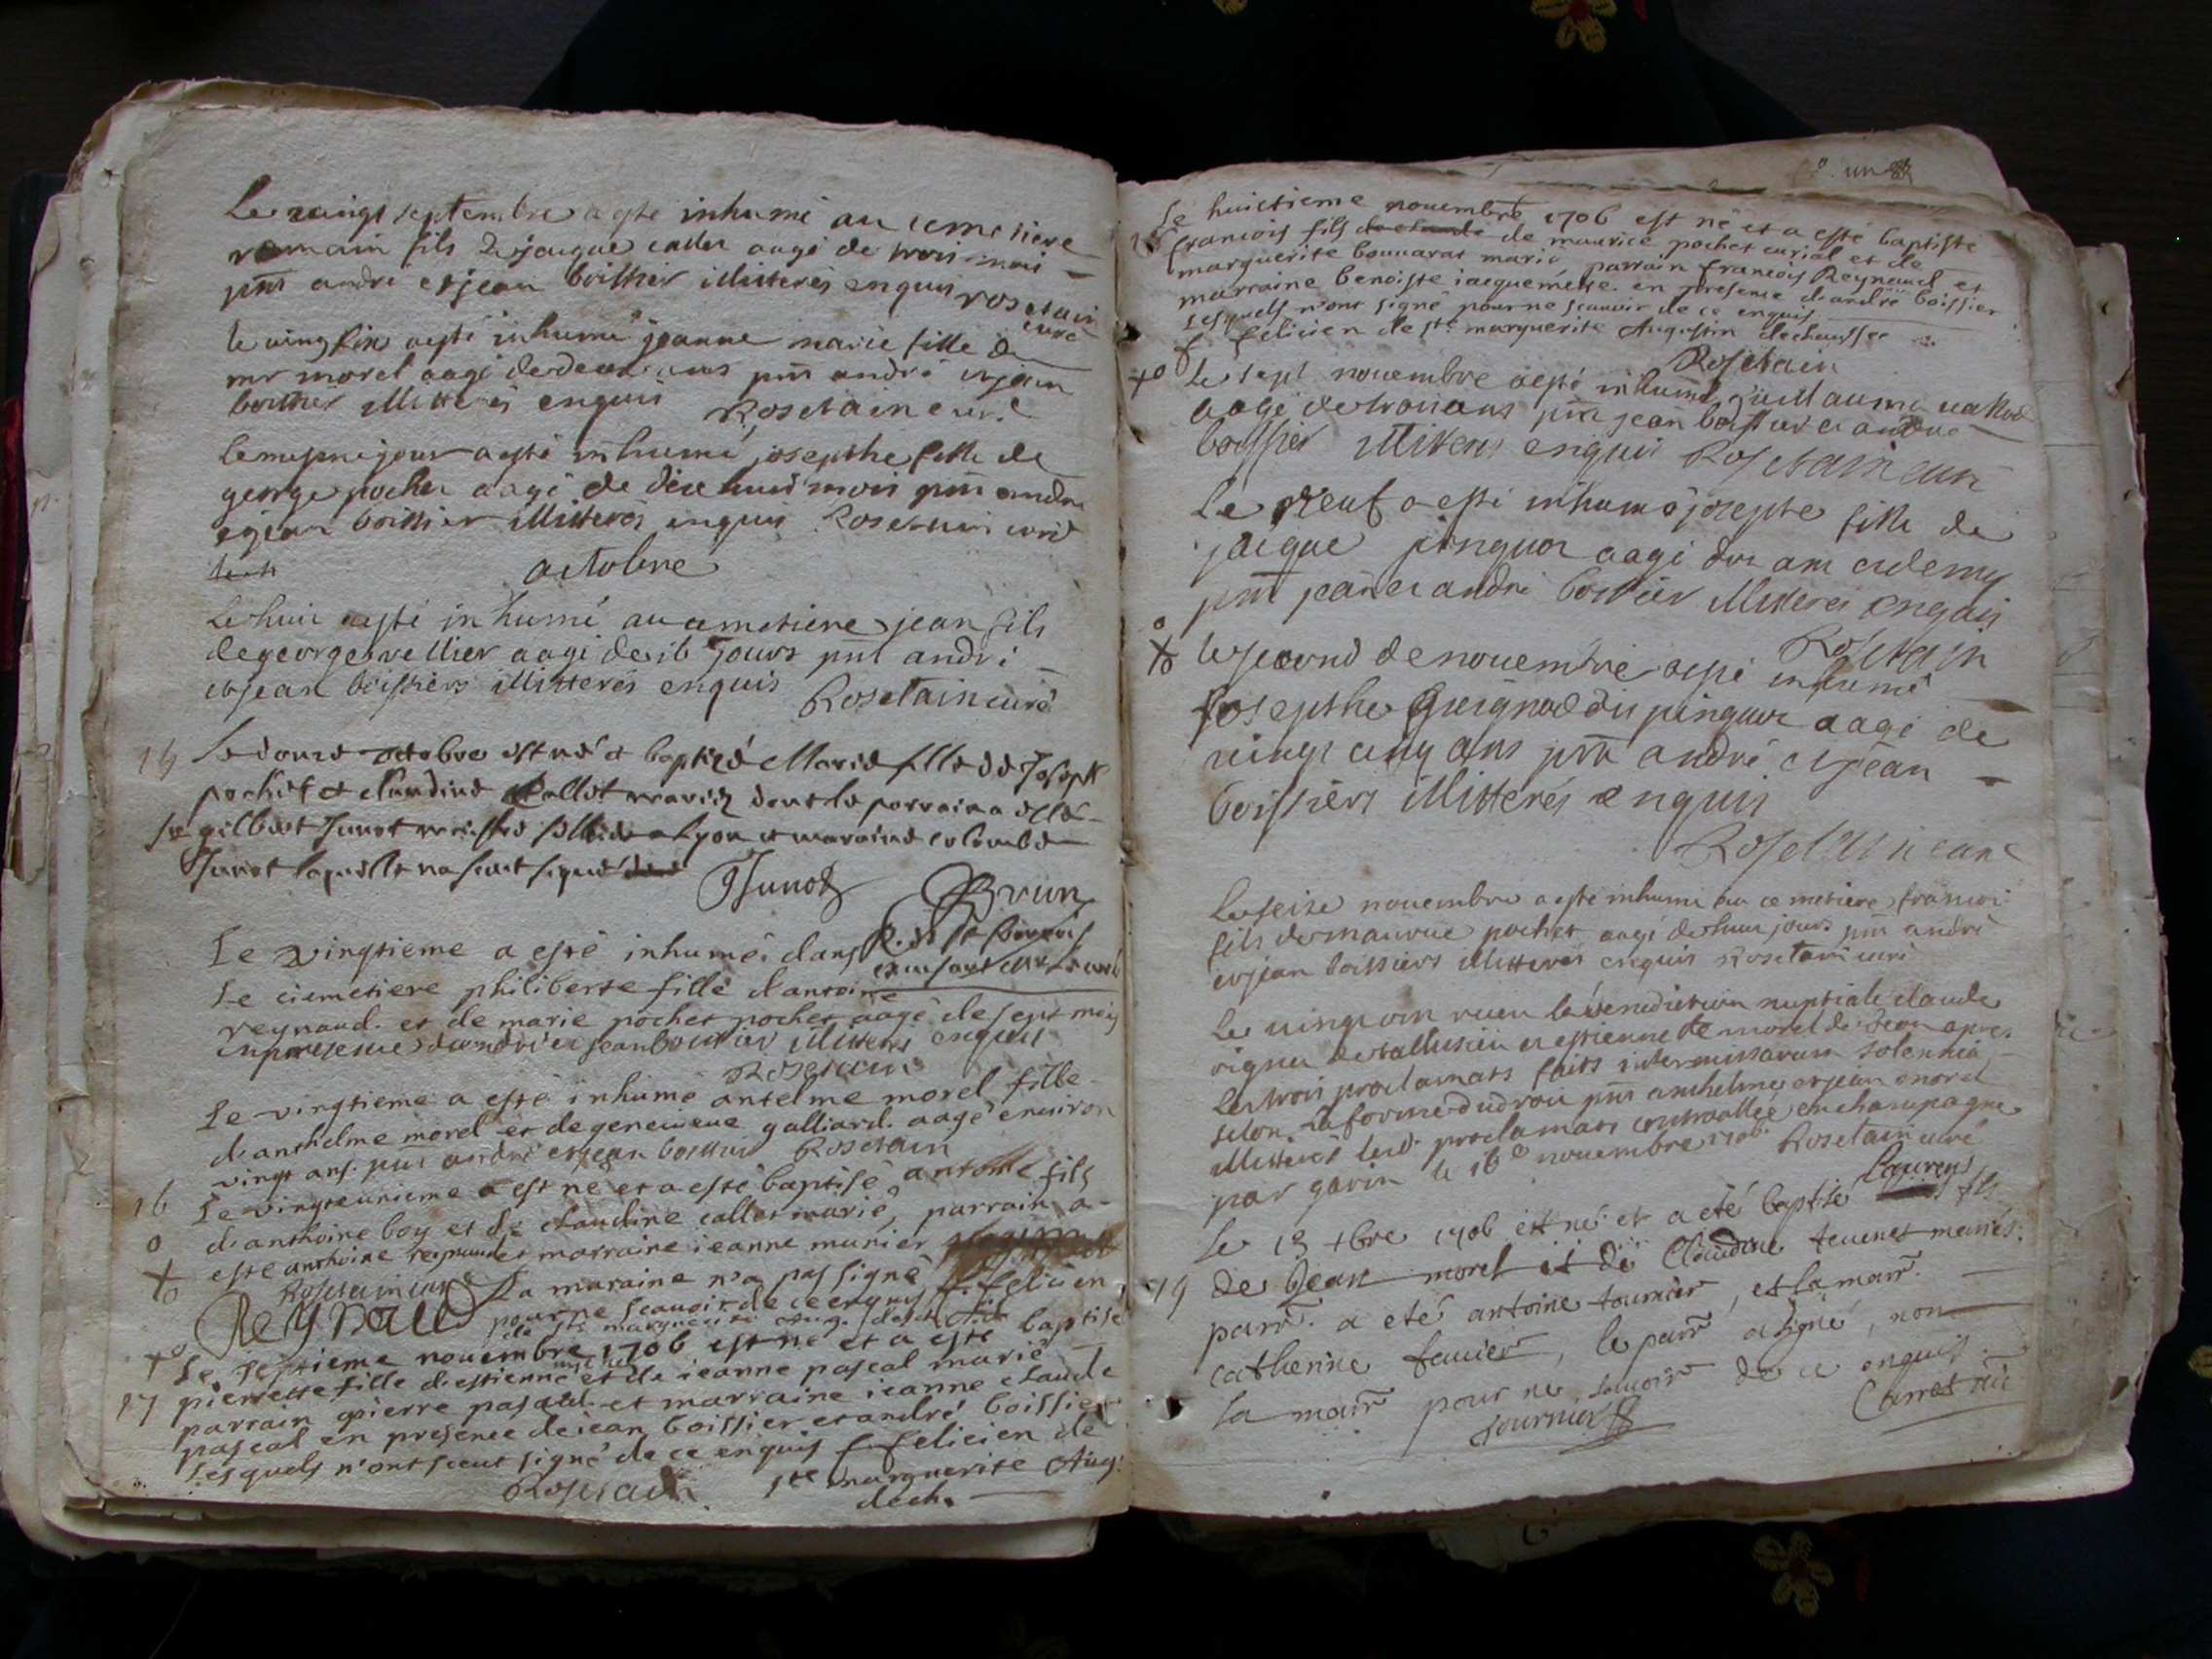 Le vingt septembre a esté inhumé au cemetiere
romain fils de jacque cader aagé de trois mois
pnt andré et jean boissier illitterés enquis rosetain
curé
le vingt six a esté inhumé jeanne marie fille de
mr morel aagé de deux ans pnt andré et jean
boissier illitterés enquis Rosetain curé
le mesme jour a esté inhumé josepthe fille de
george pochet aagé de dixe huit mois pnt andre
et jean boissier illitterés enquis Rosetain curé
octobre
Le huit a esté inhumé au cemetiere jean fils
de george vellier aagé de 16 jours pnt andré
et jean boissiers illitterés enquis Rosetain curé
Le douze octobre est né et baptizé Marie fille de Joseph
pochet et claudine callet mariez dont le parrain a esté
Sr gilbert Junot à Lyon et maraine colombe
Junot laquelle na sceut signé
GJunot Brun
Le vingtieme a esté inhumé dans
Le ciemetiere philiberte fille d'antoine
reynaud. et de marie pochet pochet aagé de sept mois
en presence d'andré et jean boissier illitterés enquis
Rosetain
Le vingtieme a esté inhumé antelme morel fille
d'anthelme morel et de genevieve galliard. aagé environ
vingt ans. pnt andré et jean boissier Rosetain
16 Le vingteunieme a est né et a esté baptisé antoine fils
o d'anthoine bey et de claudine callet marié, parrain a
esté anthoine reynaud et marraine ieanne munier
Rosetain curé La maraine n'a pas signé f. felicien
Reynaud pour ne scavoir de ce enquis
de ste marguerite Aug. dech.
Le septieme novembre 1706 est né et a esté baptisé
17 pierrette fille d'estienne michel et de ieanne pascal marié
parrain pierre pascal et marraine ieanne claude
pascal en presence de iean boissier et andré boissier
Lesquels n'ont sceut signé de ce enquis f felicien de
Rosetain ste marguerite Aug.
dech.
Le huictieme novembre 1706 est né et a esté baptisé
francois fils de maurice pochet curial et de
marguerite bonnarat marié parrain francois Reynaud et
marraine benoiste iacquemette. en presence d'andré boissier
Lesquels n'ont signé pour ne scauvoir de ce enquis
f felicien de ste marguerite Augustin dechaussee
Rosetain
Le sept novembre a esté inhumé guillaume
aagé de trois ans pnt jean boissier et andré
boissier illiteres enquis Rosetain curé
Le neuf a esté inhumé josepte fille de
jacque pinquor aagé d'un an et demy
pnt jean et andré boissier illiteres enquis
Rosetain
le second de novembre a esté inhumé
Josepthe guignod dit pinquor aagé de
vingt cinq ans pnt andré et jean
boissiers illitterés enquis
Rosetain curé
Le seize novembre a esté inhumé au cemetiere francois
fils de maurice pochet aagé de huit jours pnt andré
et jean boissiers illitterés enquis Rosetain curé
Le vingt ont receu la benediction nuptiale claude
vignu de vallusin et estiennette morel de apres
les trois proclamats faits solennia
selon la forme du droit pnt anthelme et jean morel
illitterés lesd. proclamats controollée en champagne
par gavin le 16e novembre 1706. Rosetain curé
Le 13 xbre 1706 est né et a été baptisé Laurens fils
19 de Jean morel et de Claudine tevenet mariés.
parr. a eté antoine tournier, et la marr.
catherine favier, le parr a signé, non
la marr pour ne savoir de ce enquis.
Tournier Carret vic